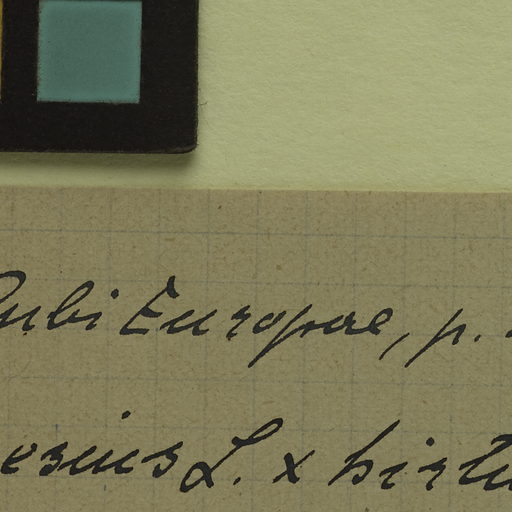 Rubi Europae, p.
caesius L. x hirtu